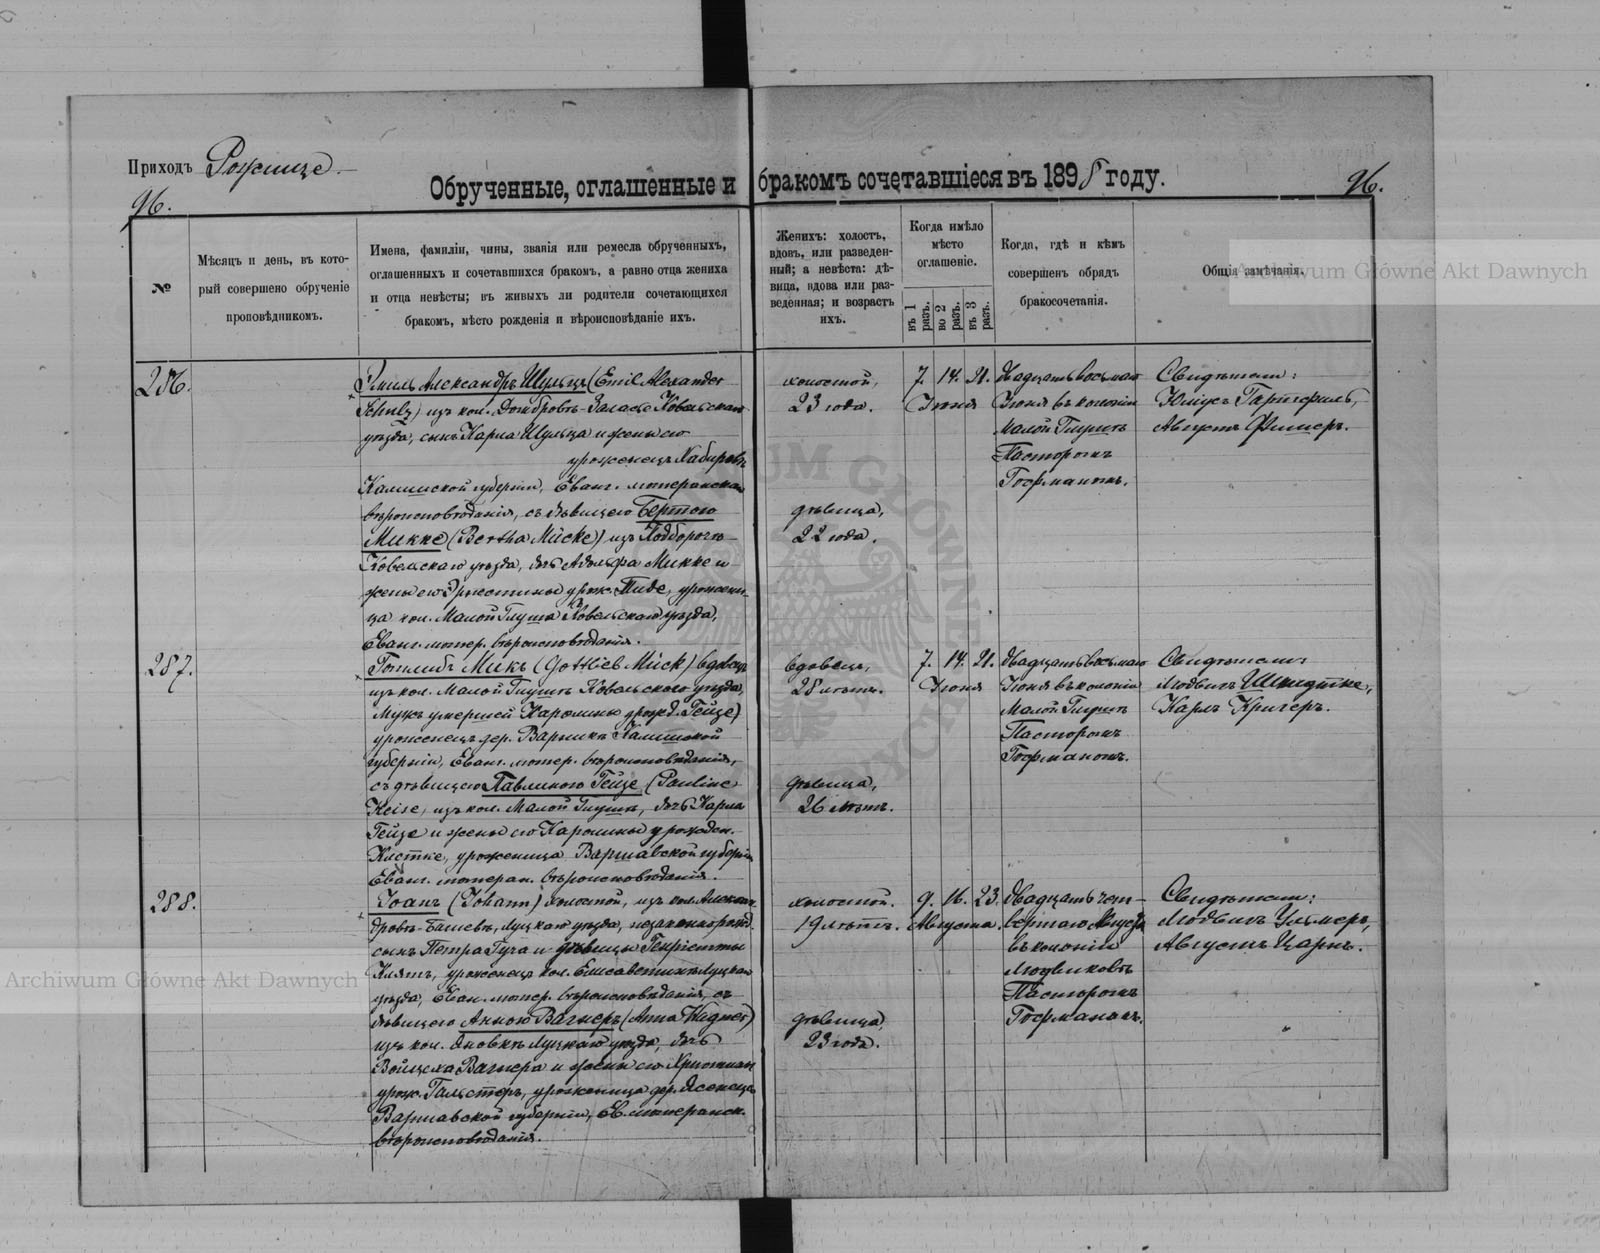 Приходъ Рожище.
96.
Обрученные, оглашенные и бракомъ сочетавшіеся въ 1898 году.
96.
№
Мѣсяцъ и день, въ кото-
рый совершено обрученіе
проповѣдникомъ.
Имена, фамиліи, чины, званія или ремесла обрученныхъ,
оглашенныхъ и сочетавшихся бракомъ, а равно отца жениха
и отца невѣсты; въ живыхъ ли родители сочетающихся
бракомъ, мѣсто рожденія и вѣроисповѣданіе ихъ.
Женихъ: холостъ,
вдовъ, или разведен-
ный; а невѣста: дѣ-
вица, вдова или раз-
веденная; и возрастъ
ихъ.
Когда имѣло
мѣсто
оглашеніе.
въ 1 разъ.
во 2 разъ.
въ 3 разъ.
Когда, гдѣ и кѣмъ
совершенъ обрядъ
бракосочетанія.
Общія замѣчанія.
Archiwum Główne Akt Dawnych
286.
Эмиль Александръ Шульцъ (Emil Alexander
Schulz) изъ кол. Домбровъ-Заласье Ковельскаго
уѣзда, сынъ Карла Шульца и жены его
уроженецъ
Калишской губерніи, Еванг. лютеранскаго
вѣроисповѣданія, съ дѣвицею Бертою
Микке (Bertha Mücke) изъ Подбороча
Ковельскаго уѣзда, дочь Адольфа Микке и
жены его Эрнестины урож. Тиде, урожени-
ца кол. Малой Глуша Ковельскаго уѣзда,
Еванг. лютер. вѣроисповѣданія.
холостой,
23 года.
дѣвица,
22 года.
7. 14. 21.
Іюня
Двадцать восьмаго
Іюня въ колоніи
Малой Глушѣ
Пасторомъ
Гофманомъ.
Свидѣтели:
Юліусъ
Августъ Фишеръ.
287.
Готлибъ Микъ (Gottlieb Mück) вдовецъ
изъ кол. Малой Глушѣ Ковельскаго уѣзда,
мужъ умершей Каролины урожд. Гейзе)
уроженецъ дер. Калишской
губерніи, Еванг. лютер. вѣроисповѣданія,
съ дѣвицею Павлиною Гейзе (Pauline
Heise, изъ кол. Малой Глушѣ, дочь Карла
Гейзе и жены его Каролины урожден.
Клетке, уроженица Варшавской губерніи
Еванг. лютеран. вѣроисповѣданія.
вдовецъ,
28 лѣтъ.
дѣвица,
26 лѣтъ.
7. 14. 21.
Іюня
Двадцать восьмаго
Іюня въ колоніи
Малой Глушѣ
Пасторомъ
Гофманомъ.
Свидѣтели:
Людвигъ Шмидтке,
Карлъ Кригеръ.
288.
Іоанъ (Johann) холостой, изъ кол. Алексан-
дровъ-Башевъ, Луцкаго уѣзда, незаконнорожд.
сынъ Петра Гуча и дѣвицы Генріетты
Клятъ, уроженецъ кол. Елисаветинъ Луцкаго
уѣзда, Еван. лютер. вѣроисповѣданія, съ
дѣвицею Анною Вагнеръ (Anna Wagner)
изъ кол. Яновкѣ Луцкаго уѣзда, дочь
Войцеха Вагнера и жены его Христіан
урож. Гальстеръ, уроженица дер. Ясенецъ
Варшавской губерніи, Ев. лютеранск.
вѣроисповѣданія.
холостой.
19 лѣтъ.
дѣвица
23 года.
9. 16. 23.
Августа
Двадцать чет-
вертаго Августа
въ колоніи
Людвиковѣ
Пасторомъ
Гофманомъ.
Свидѣтели:
Людвигъ Ульмеръ,
Августъ Царнъ.
Archiwum Główne Akt Dawnych